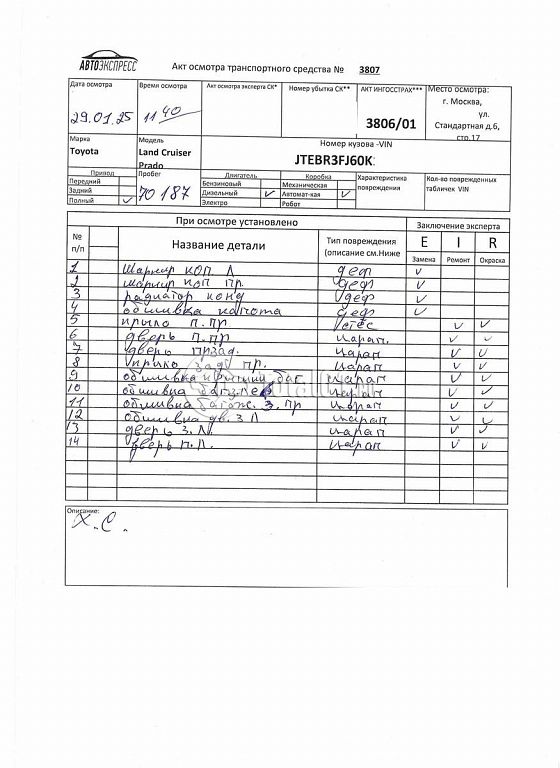 АВТОЭКСПРЕСС
Акт осмотра транспортного средства № 3807
Дата осмотра
29.01.25
Время осмотра
11 40
Акт осмотра эксперта СК*
Номер убытка СК**
АКТ ИНГОССТРАХ***
3806/01
Место осмотра:
г. Москва,
ул.
Стандартная д.6,
стр.17
Марка
Toyota
Модель
Land Cruiser
Prado
Номер кузова -VIN
JTEBR3FJ60K
Привод
Передний
Задний
Полный
Пробег
70 187
Двигатель
Бензиновый
Дизельный
Электро
Коробка
Механическая
Автомат-кая
Робот
Характеристика
повреждения
Кол-во поврежденных
табличек VIN
При осмотре установлено
Заключение эксперта
№
п/п
Название детали
Тип повреждения
(описание см.Ниже
E I R
Замена Ремонт Окраска
1 Шарнир коп Л деф
2 шарнир коп пр. деф
3 радиатор конд деф
4 обшивка капота деф
5 крыло п.пр.
6 дверь п.пр царап.
7 дверь пр зад. царап
8 крыло зад пр. царап
9 обшивка крышки баг. царап
10 обшивка баг. лев царап
11 обшивка багаж. з. пр царап
12 обшивка дв. з Л царап
13 дверь з.Л. царап
14 дверь п.Л. царап
Описание:
Х.С.